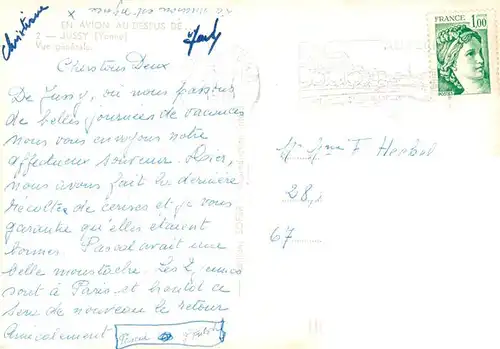 Christiane
EN AVION AU DESSUS DE
2 - JUSSY (Yonne)
Vue générale
FRANCE
1,00
Chers tous Deux
De Jussy, où nous passons
de belles journées de vacances
nous vous envoyons notre
affectueux souvenir. Hier,
nous avons fait la dernière
récolte de cerises et je vous
garantie qu'elles étaient
bonnes. Pascal avait une
belle moustache. Les 2,
sont à Paris et bientôt ce
sera de nouveau le retour
Amicalement
Pascal
Mr Mme F
28
67